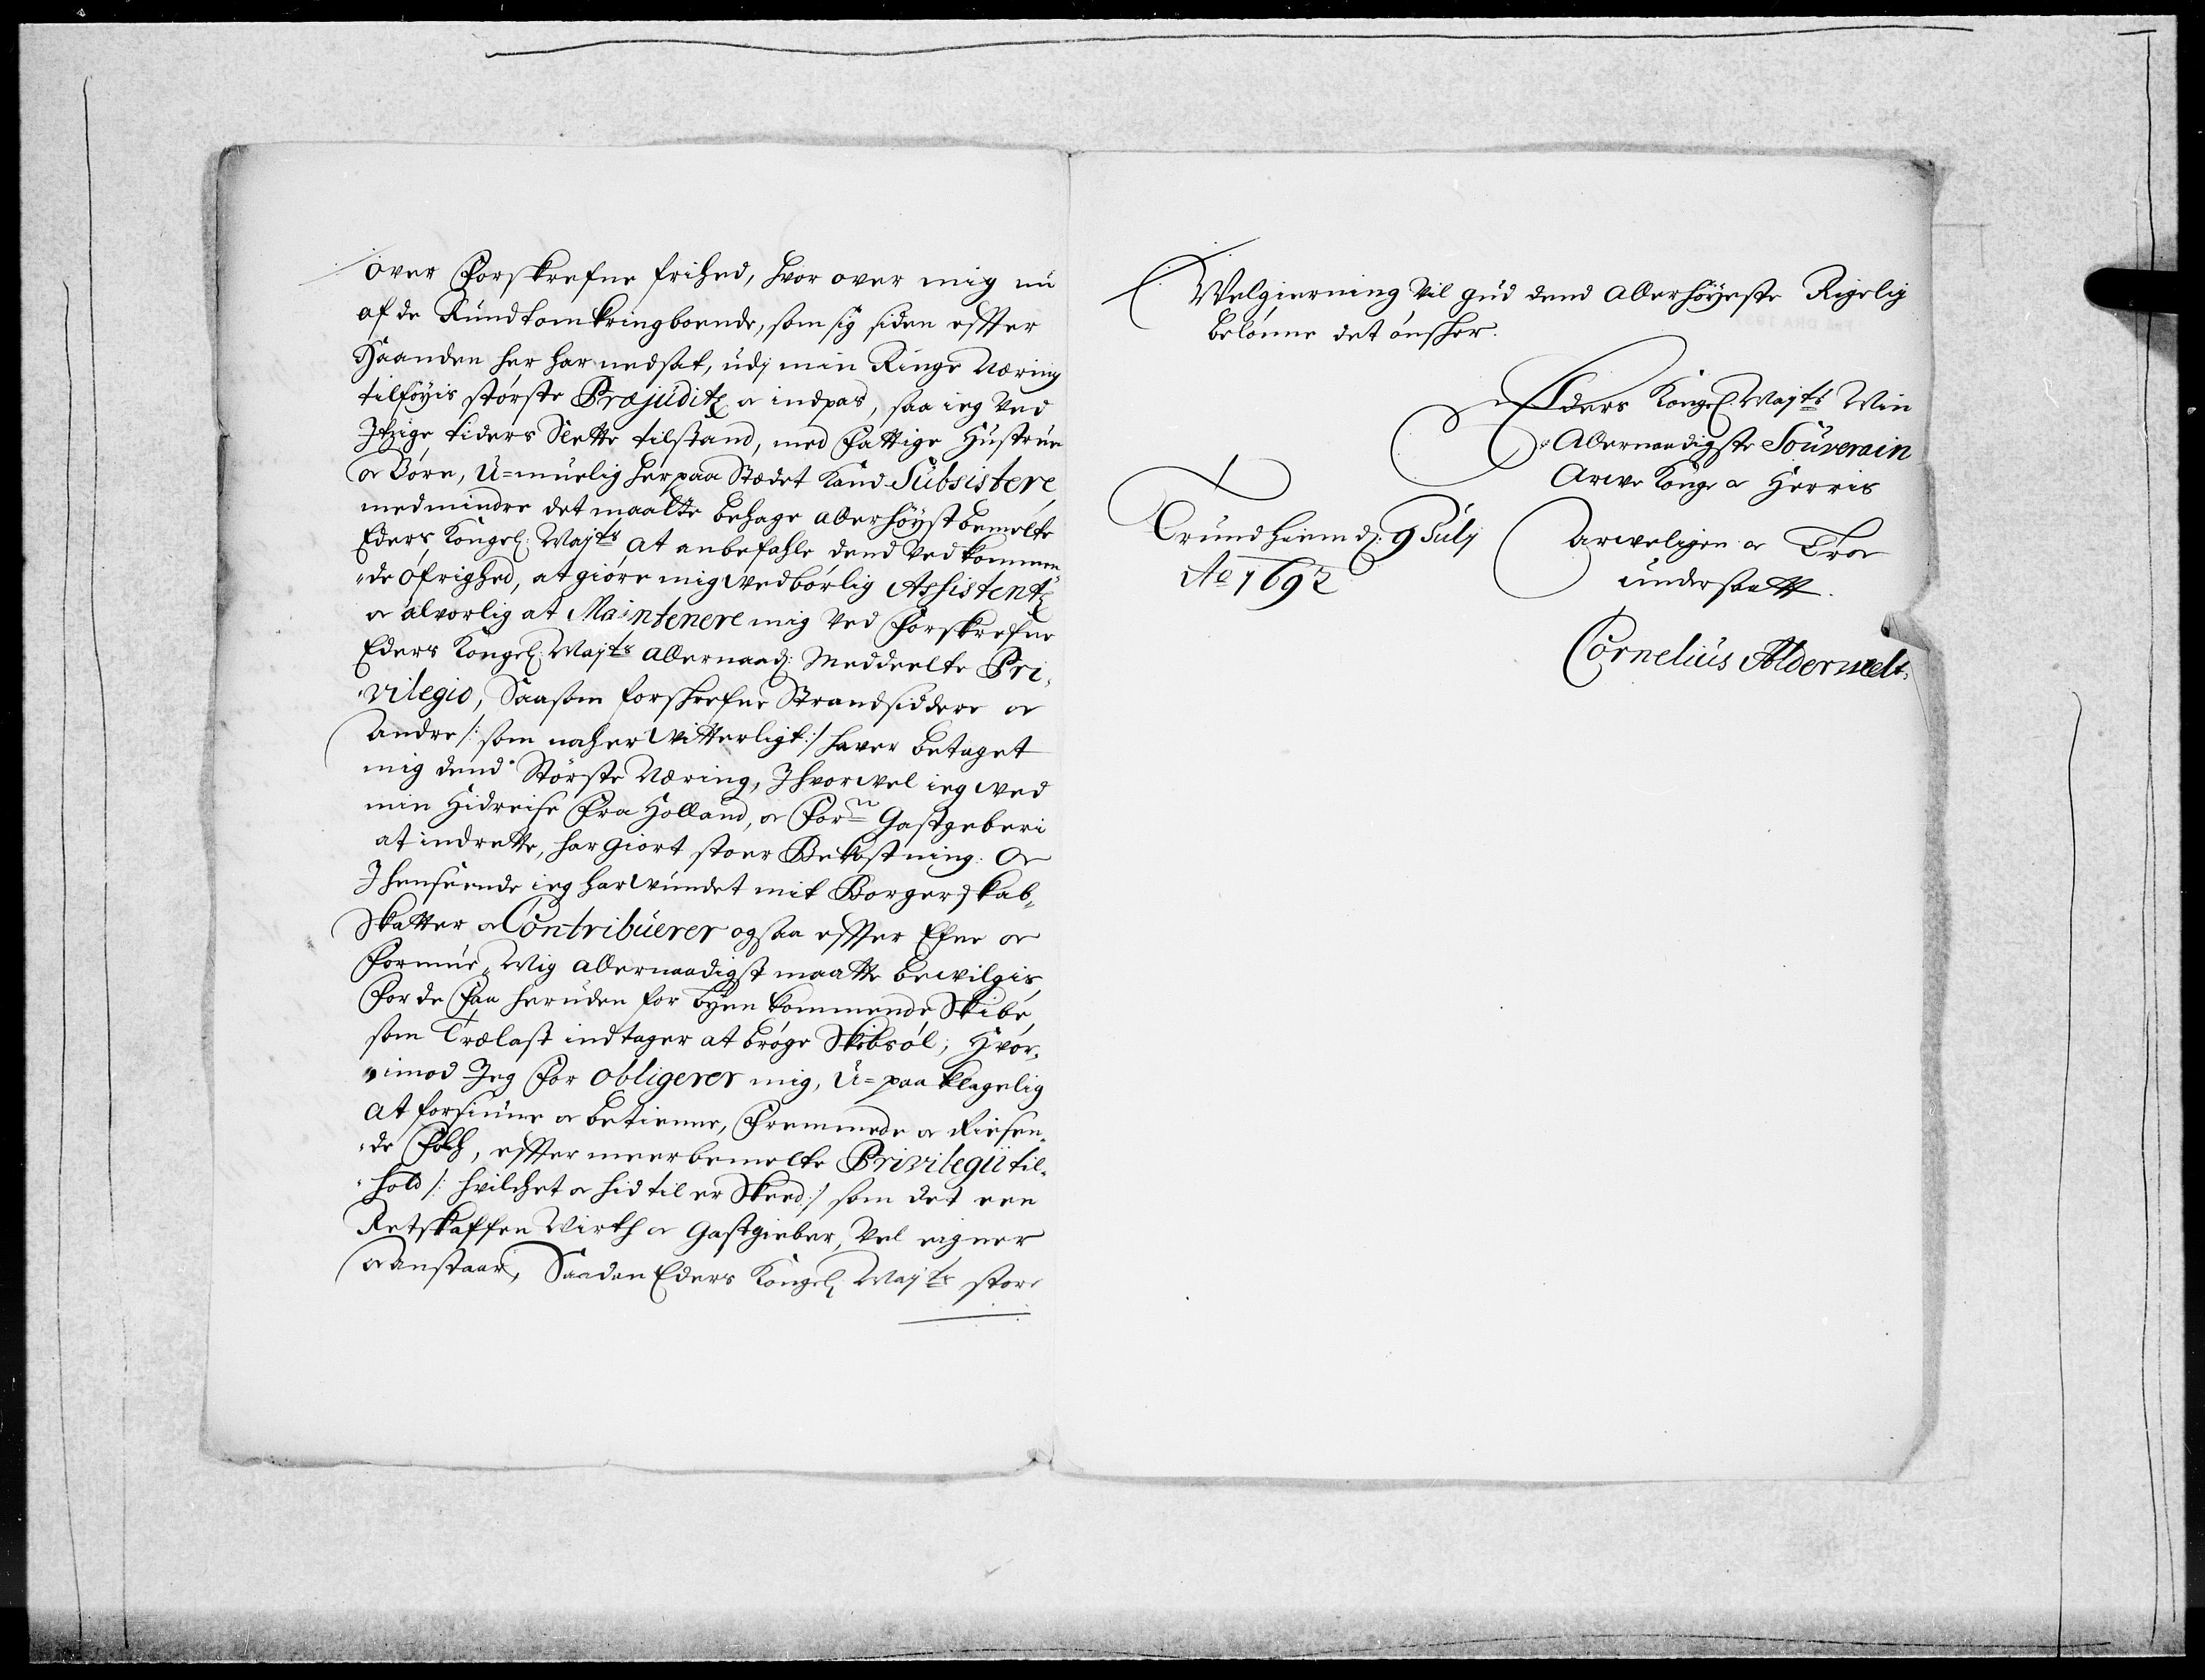 over Forskrefne frihed, hvor over mig nu
af de Rundtomkringboende, som sig siden effter
Haanden her har nedsat, udj min Ringe Næring
tilføyis største Præjuditz og indpas, saa ieg Ved
Itzige tiders Slette tilstand, med Fattige Hustrue
og Børn, U=muelig her paa Stædet Kand Subsistere
medmindre det maatte behage allerhøystbemelte
Eders Kongel: Maјts at anbefahle dend Vedkommen
de Øfrighed, at giøre mig wedbørlig Assistentz
og alvorlig at Maintenere mig Ved Forskrefne
Eders Kongel: Majts allernaad: Meddeelte Pri-
vilegio, Saasom forskrefne Strandsiddere og
Andre /: som noksom Witterligt :/ haver betaget
mig dend Største Næring, Ihvorvel ieg wed
min Hidreise Fra Holland, og Forn Gastgeberi
at indrette, har giort stoer Bekostning. Og
I henseende ieg har wundet mit Borgerskab,
Skatter og Contribuerer ogsaa effter Efne og
Formue, Mig allernaadigst maatte bewilgis,
For de Faa heruden for byen kommende Skibe,
som Trælast indtager at brøge Skibsøl; Hvor-
imod Jeg For obligerer mig, U=paaklagelig
at forsiune og betienne, Fremmede og Reisen-
de Folch, effter meerbemelte Privilegii til-
hold /: hvilchet og hid til er Skeed :/ som det een
Retskaffen Wirth og Gastgieber, Vel eigner
og anstaar, Saadan Eders Kongel: Majts store
Welgierning Vil gud dend allerhøyeste Rigelig
belønne det ønsker.
Eders Kongel: Majts Min
Allernaadigste Souverain
Arwe Konge og Herris
Trundhiem d: 9 July
Ao 1692
Arweligen og Troe
undersaatt.
Cornelius Alderwelt.